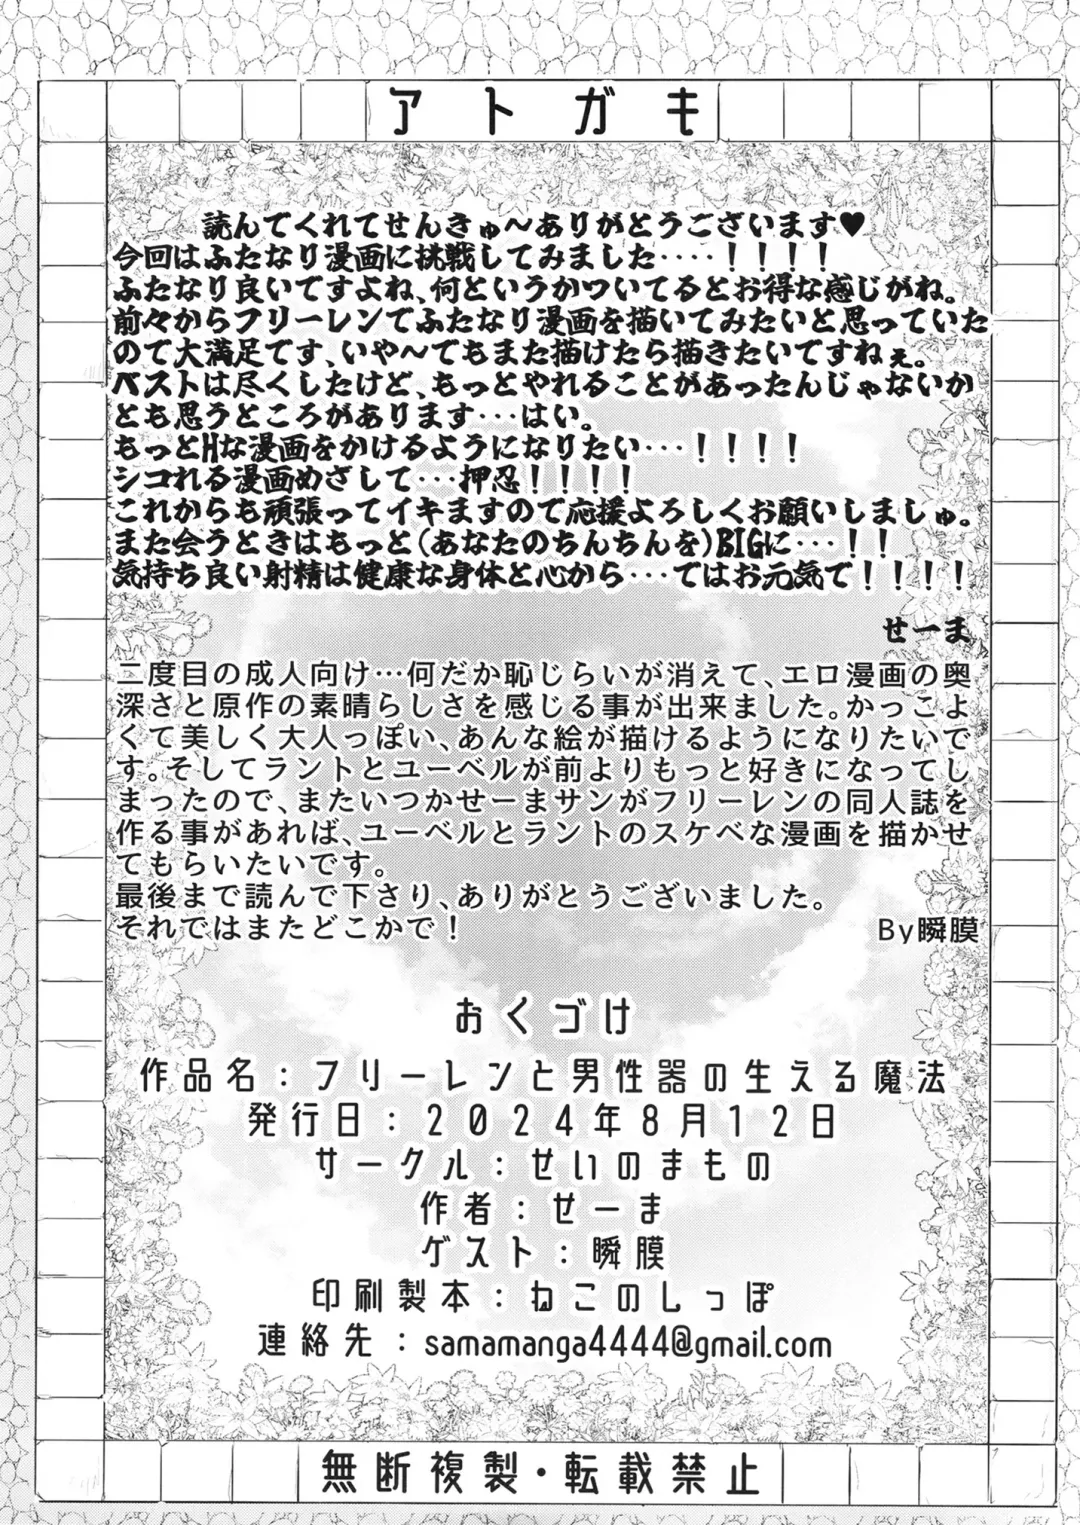 アトガキ
読んでくれてせんきゅ～ありがとうございます♥
今回はふたなり漫画に挑戦してみました‥‥！！！！
ふたなり良いですよね、何というかついてるとお得な感じがね。
前々からフリーレンでふたなり漫画を描いてみたいと思っていた
ので大満足です、いや～でもまた描けたら描きたいですねぇ。
ベストは尽くしたけど、もっとやれることがあったんじゃないか
とも思うところがあります…はい。
もっとHな漫画をかけるようになりたい…！！！！
シコれる漫画めざして…押忍！！！！
これからも頑張ってイキますので応援よろしくお願いしましゅ。
また会うときはもっと(あなたのちんちんを)BIGに…！！
気持ち良い射精は健康な身体と心から…ではお元気で！！！！
せーま
二度目の成人向け…何だか恥じらいが消えて、エロ漫画の奥
深さと原作の素晴らしさを感じる事が出来ました。かっこよ
くて美しく大人っぽい、あんな絵が描けるようになりたいで
す。そしてラントとユーベルが前よりもっと好きになってし
まったので、またいつかせーまサンがフリーレンの同人誌を
作る事があれば、ユーベルとラントのスケベな漫画を描かせ
てもらいたいです。
最後まで読んで下さり、ありがとうございました。
それではまたどこかで！
By瞬膜
おくづけ
作品名：フリーレンと男性器の生える魔法
発行日：2024年8月12日
サークル：せいのまもの
作者：せーま
ゲスト：瞬膜
印刷製本：ねこのしっぽ
連絡先：samamanga4444@gmail.com
無断複製・転載禁止